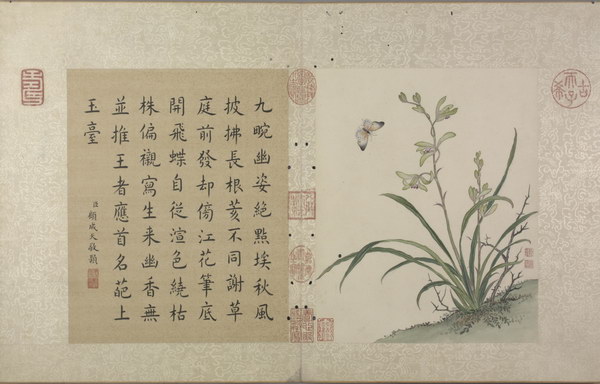 九畹幽姿絕點埃秋風
披拂長根荄不同謝草
庭前發却傍江花筆底
開飛蝶自從渲色繞枯
株偏襯寫生來幽香無
並推王者應首名葩上
玉臺
臣顧成天敬題